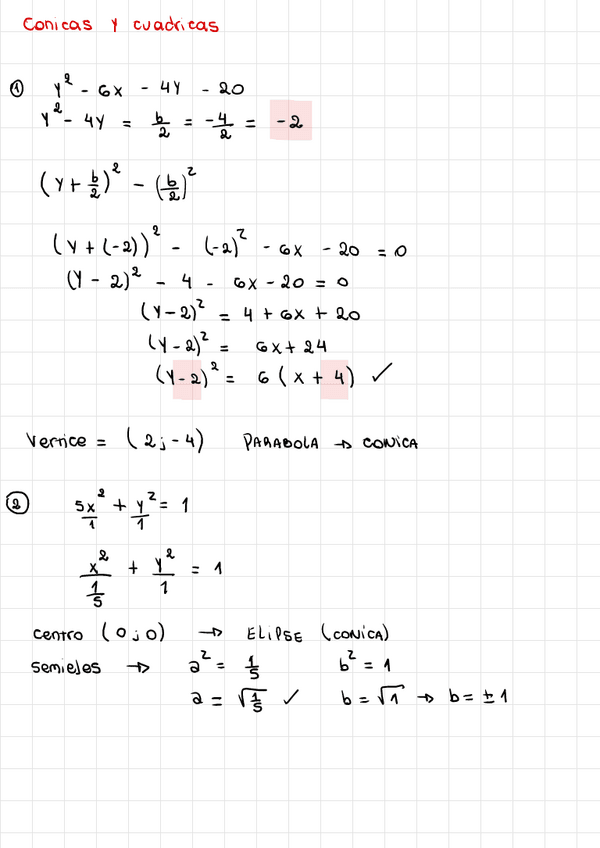 Conicas y cuadricas
① y² - 6x - 4y - 20
y² - 4y = b/2 = -4/2 = -2
(y + b/2)² - (b/2)²
(y + (-2))² - (-2)² - 6x - 20 = 0
(y - 2)² - 4 - 6x - 20 = 0
(y - 2)² = 4 + 6x + 20
(y - 2)² = 6x + 24
(y - 2)² = 6 (x + 4) ✓
Vertice = (2; -4) PARABOLA → CONICA
② 5x²/1 + y²/1 = 1
x²/(1/5) + y²/1 = 1
centro (0;0) → ELIPSE (CONICA)
semiejes → a² = 1/5 b² = 1
a = √(1/5) ✓ b = √1 → b = ±1